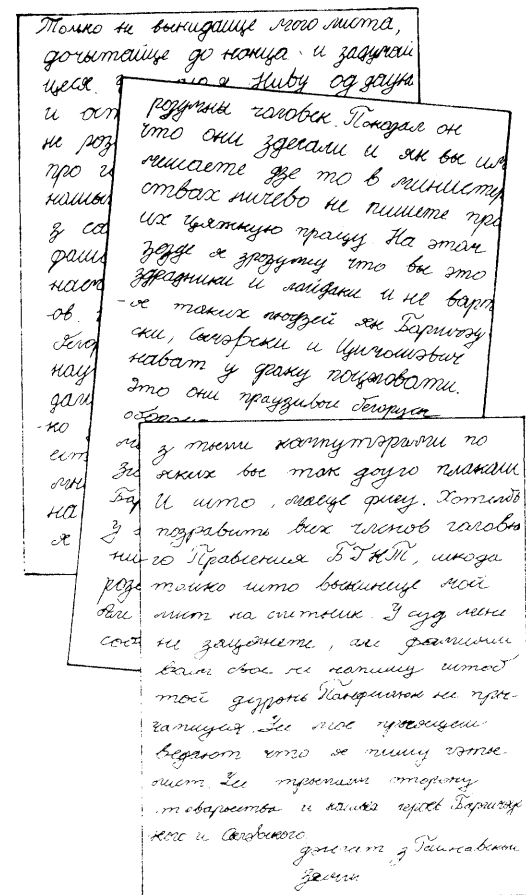 Только не выкидайце мого листа,
дочытайце до конца и задумай
цеся. Ниву од даўн
и ост
не роз
про г
нашы
з са
фаш
наст
-ов.
бегор
нау
дан
-но
ест
мн
на
я
розумны чаловек. Показал он
что они здегали и як вы им
мешаете дзе то в министер
ствах ничево не пишете про
их цяжкую працу. На этом
зезде я зрозуму что вы это
здрадники и лайдаки и не варт
-я таких людзей як Баршчэу
ски, Сычэўски и Цыгомэвич
нават у сраку поцэловати.
Это они праузивои бегорусы
Бар
У
ни
розе
з тыми кампутэрами по
яких вы так доуго плакали
И што, маеце фигу. Хотелбъ
поздравить всих членов галовно
го Правления БГКТ, шкода
толко што выкинеце мой
лист на сметник. У суд мене
не зацягнете, але фамилии
вам свое не напишу штоб
той дурэнь Панфилюк не пры-
чапиуся. Усе мое
ведают что я пишу гэты
лист. Усе трымали сторону
товарыства и нашых героев Баршчэу
ного и Сычэўского
з Гайнавской
Земли